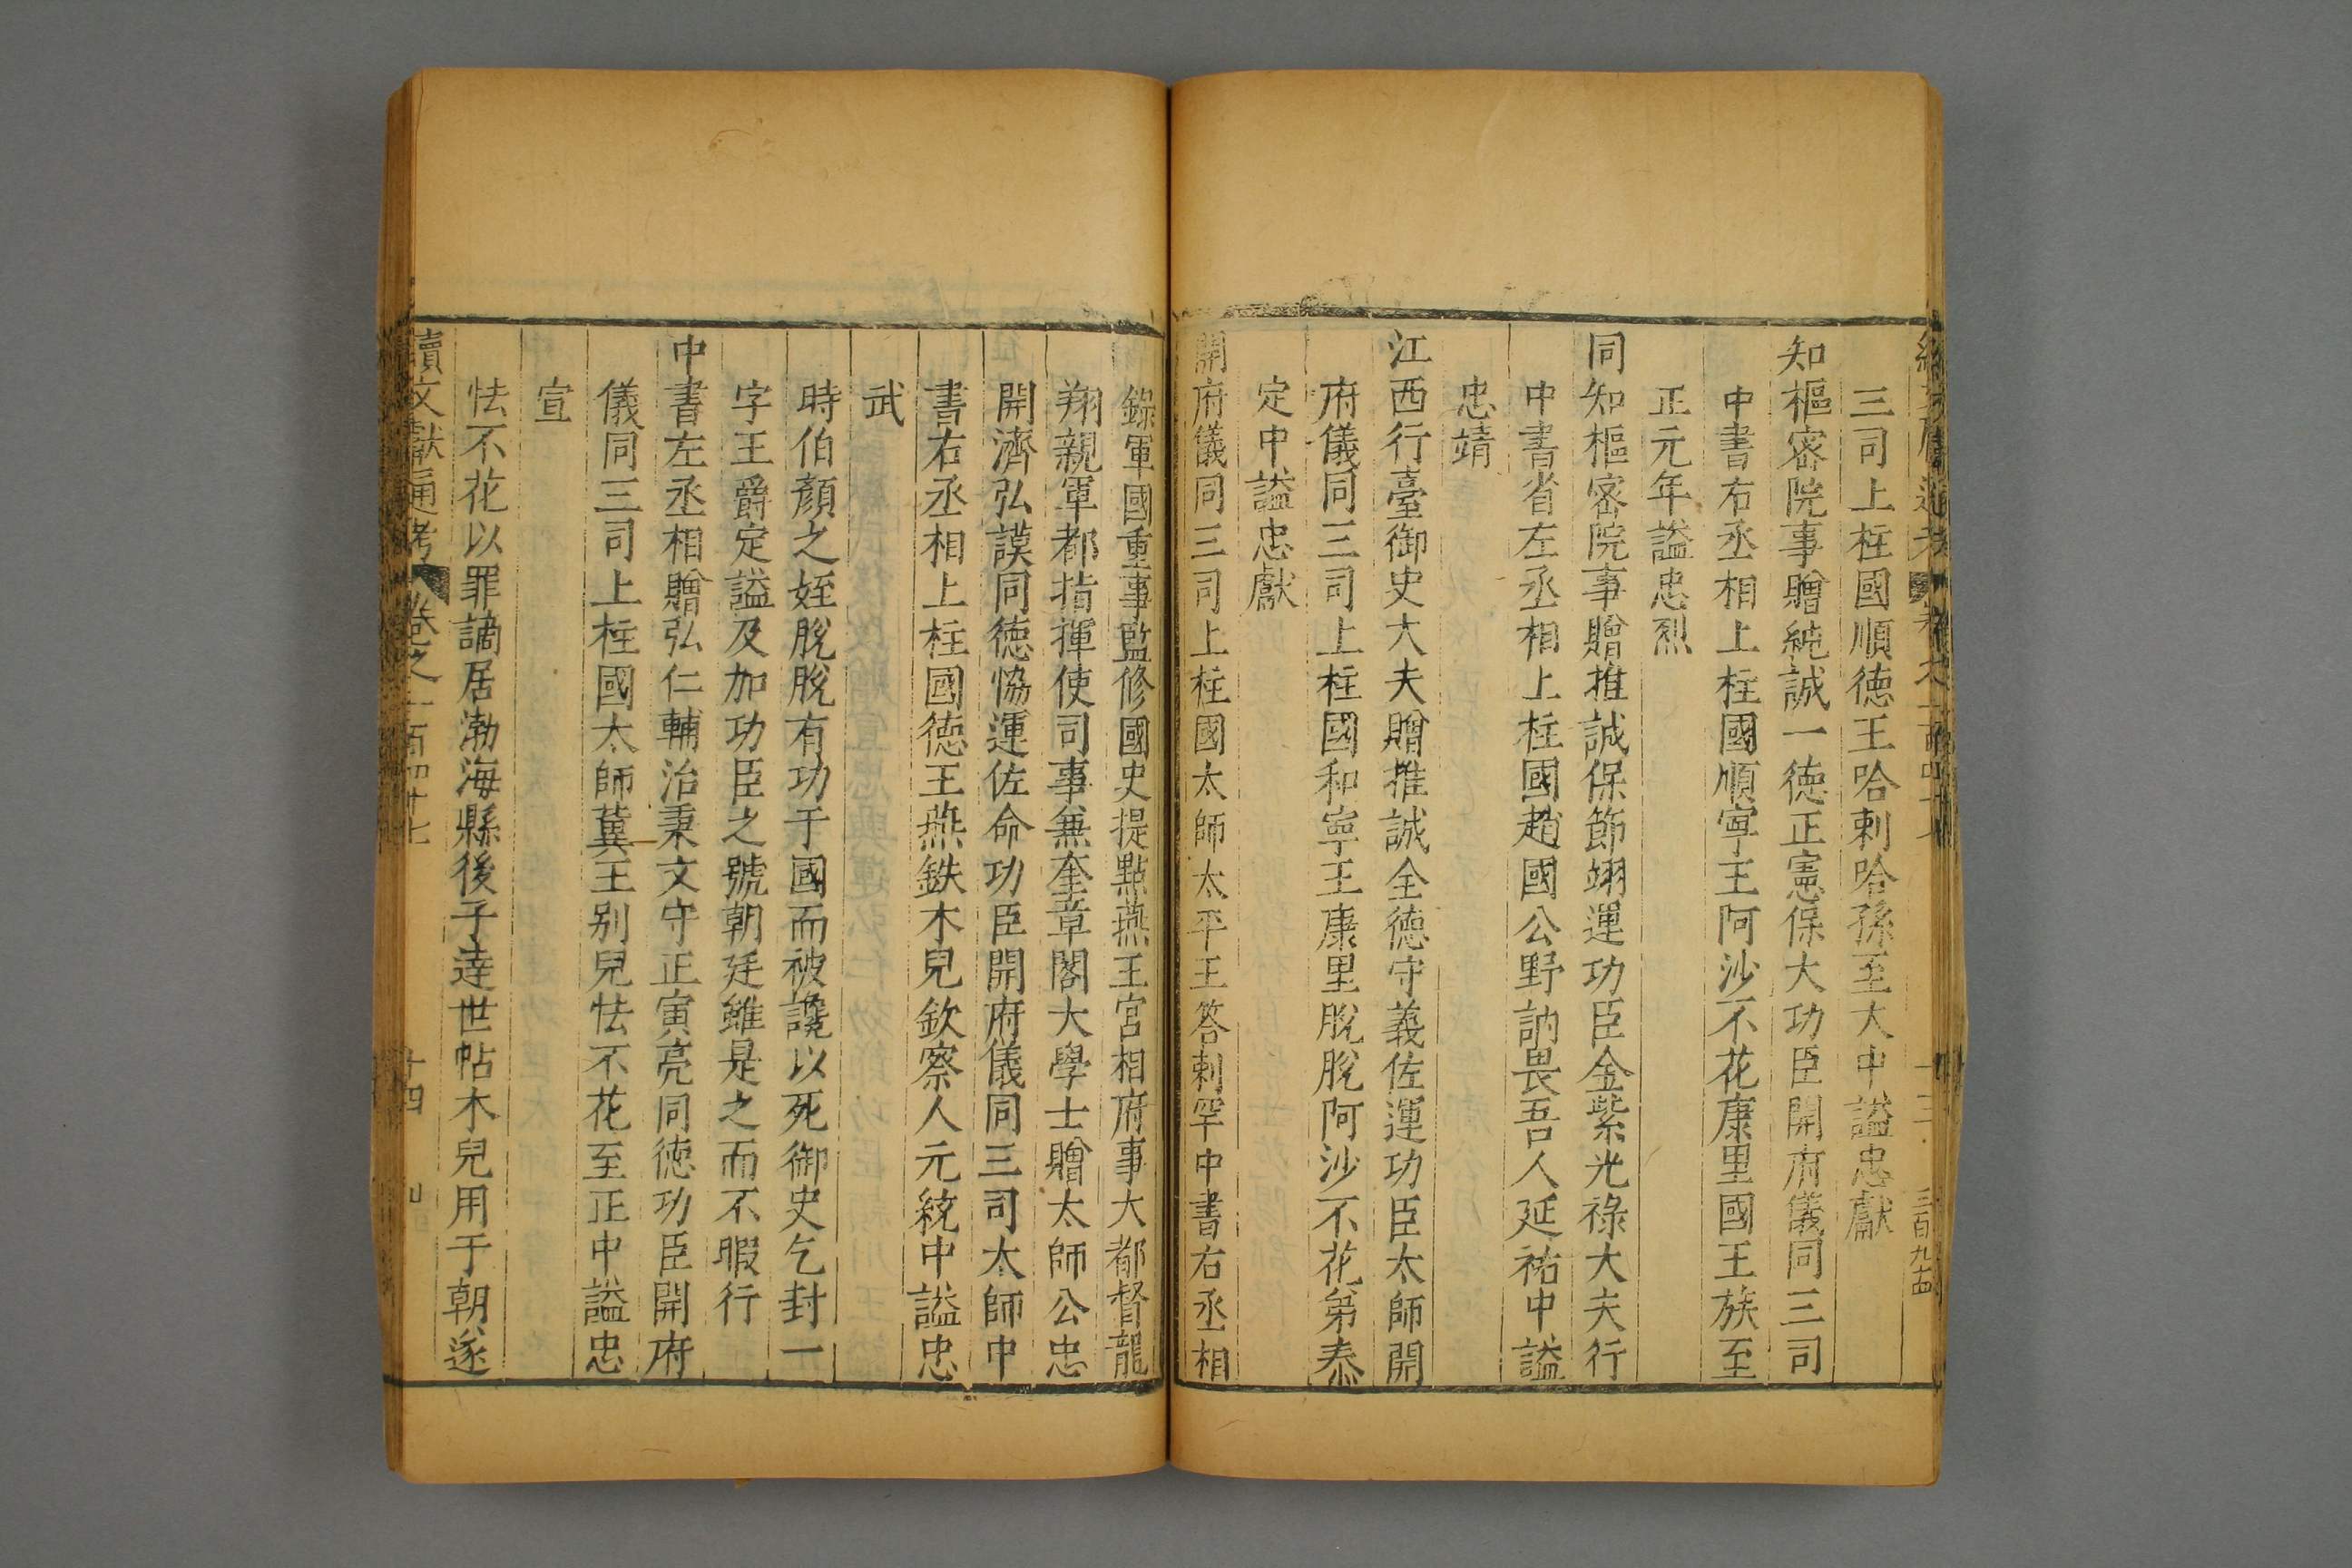 三司上柱國順德王哈剌哈孫至大中諡忠獻
知樞密院事贈純誠一德正憲保大功臣開府儀同三司
中書右丞相上柱國順寧王阿沙不花康里國王族至
正元年諡忠烈
同知樞密院事贈推誠保節翊運功臣金紫光祿大夫行
中書省左丞相上柱國趙國公野訥畏吾人延祐中諡
忠靖
江西行臺御史大夫贈推誠全德守義佐運功臣太師開
府儀同三司上柱國和寧王康里脫脫阿沙不花弟泰
定中諡忠獻
開府儀同三司上柱國太師太平王答剌罕中書右丞相
錄軍國重事監修國史提點燕王宮相府事大都督龍
翔親軍都指揮使司事兼奎章閣大學士贈太師公忠
開濟弘謨同德恊運佐命功臣開府儀同三司太師中
書右丞相上柱國德王燕鉄木兒欽察人元統中諡忠
武
時伯顏之姪脫脫有功于國而被讒以死御史乞封一
字王爵定諡及加功臣之號朝廷雖是之而不暇行
中書左丞相贈弘仁輔治秉文守正寅亮同德功臣開府
儀同三司上柱國太師冀王别兒怯不花至正中諡忠
宣
怯不花以罪謫居渤海縣後子達世帖木兒用于朝遂
續文獻通考 卷之一百四十七 十四